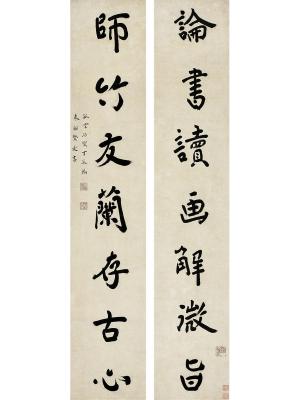 論書讀画解微旨
師竹友蘭存古心